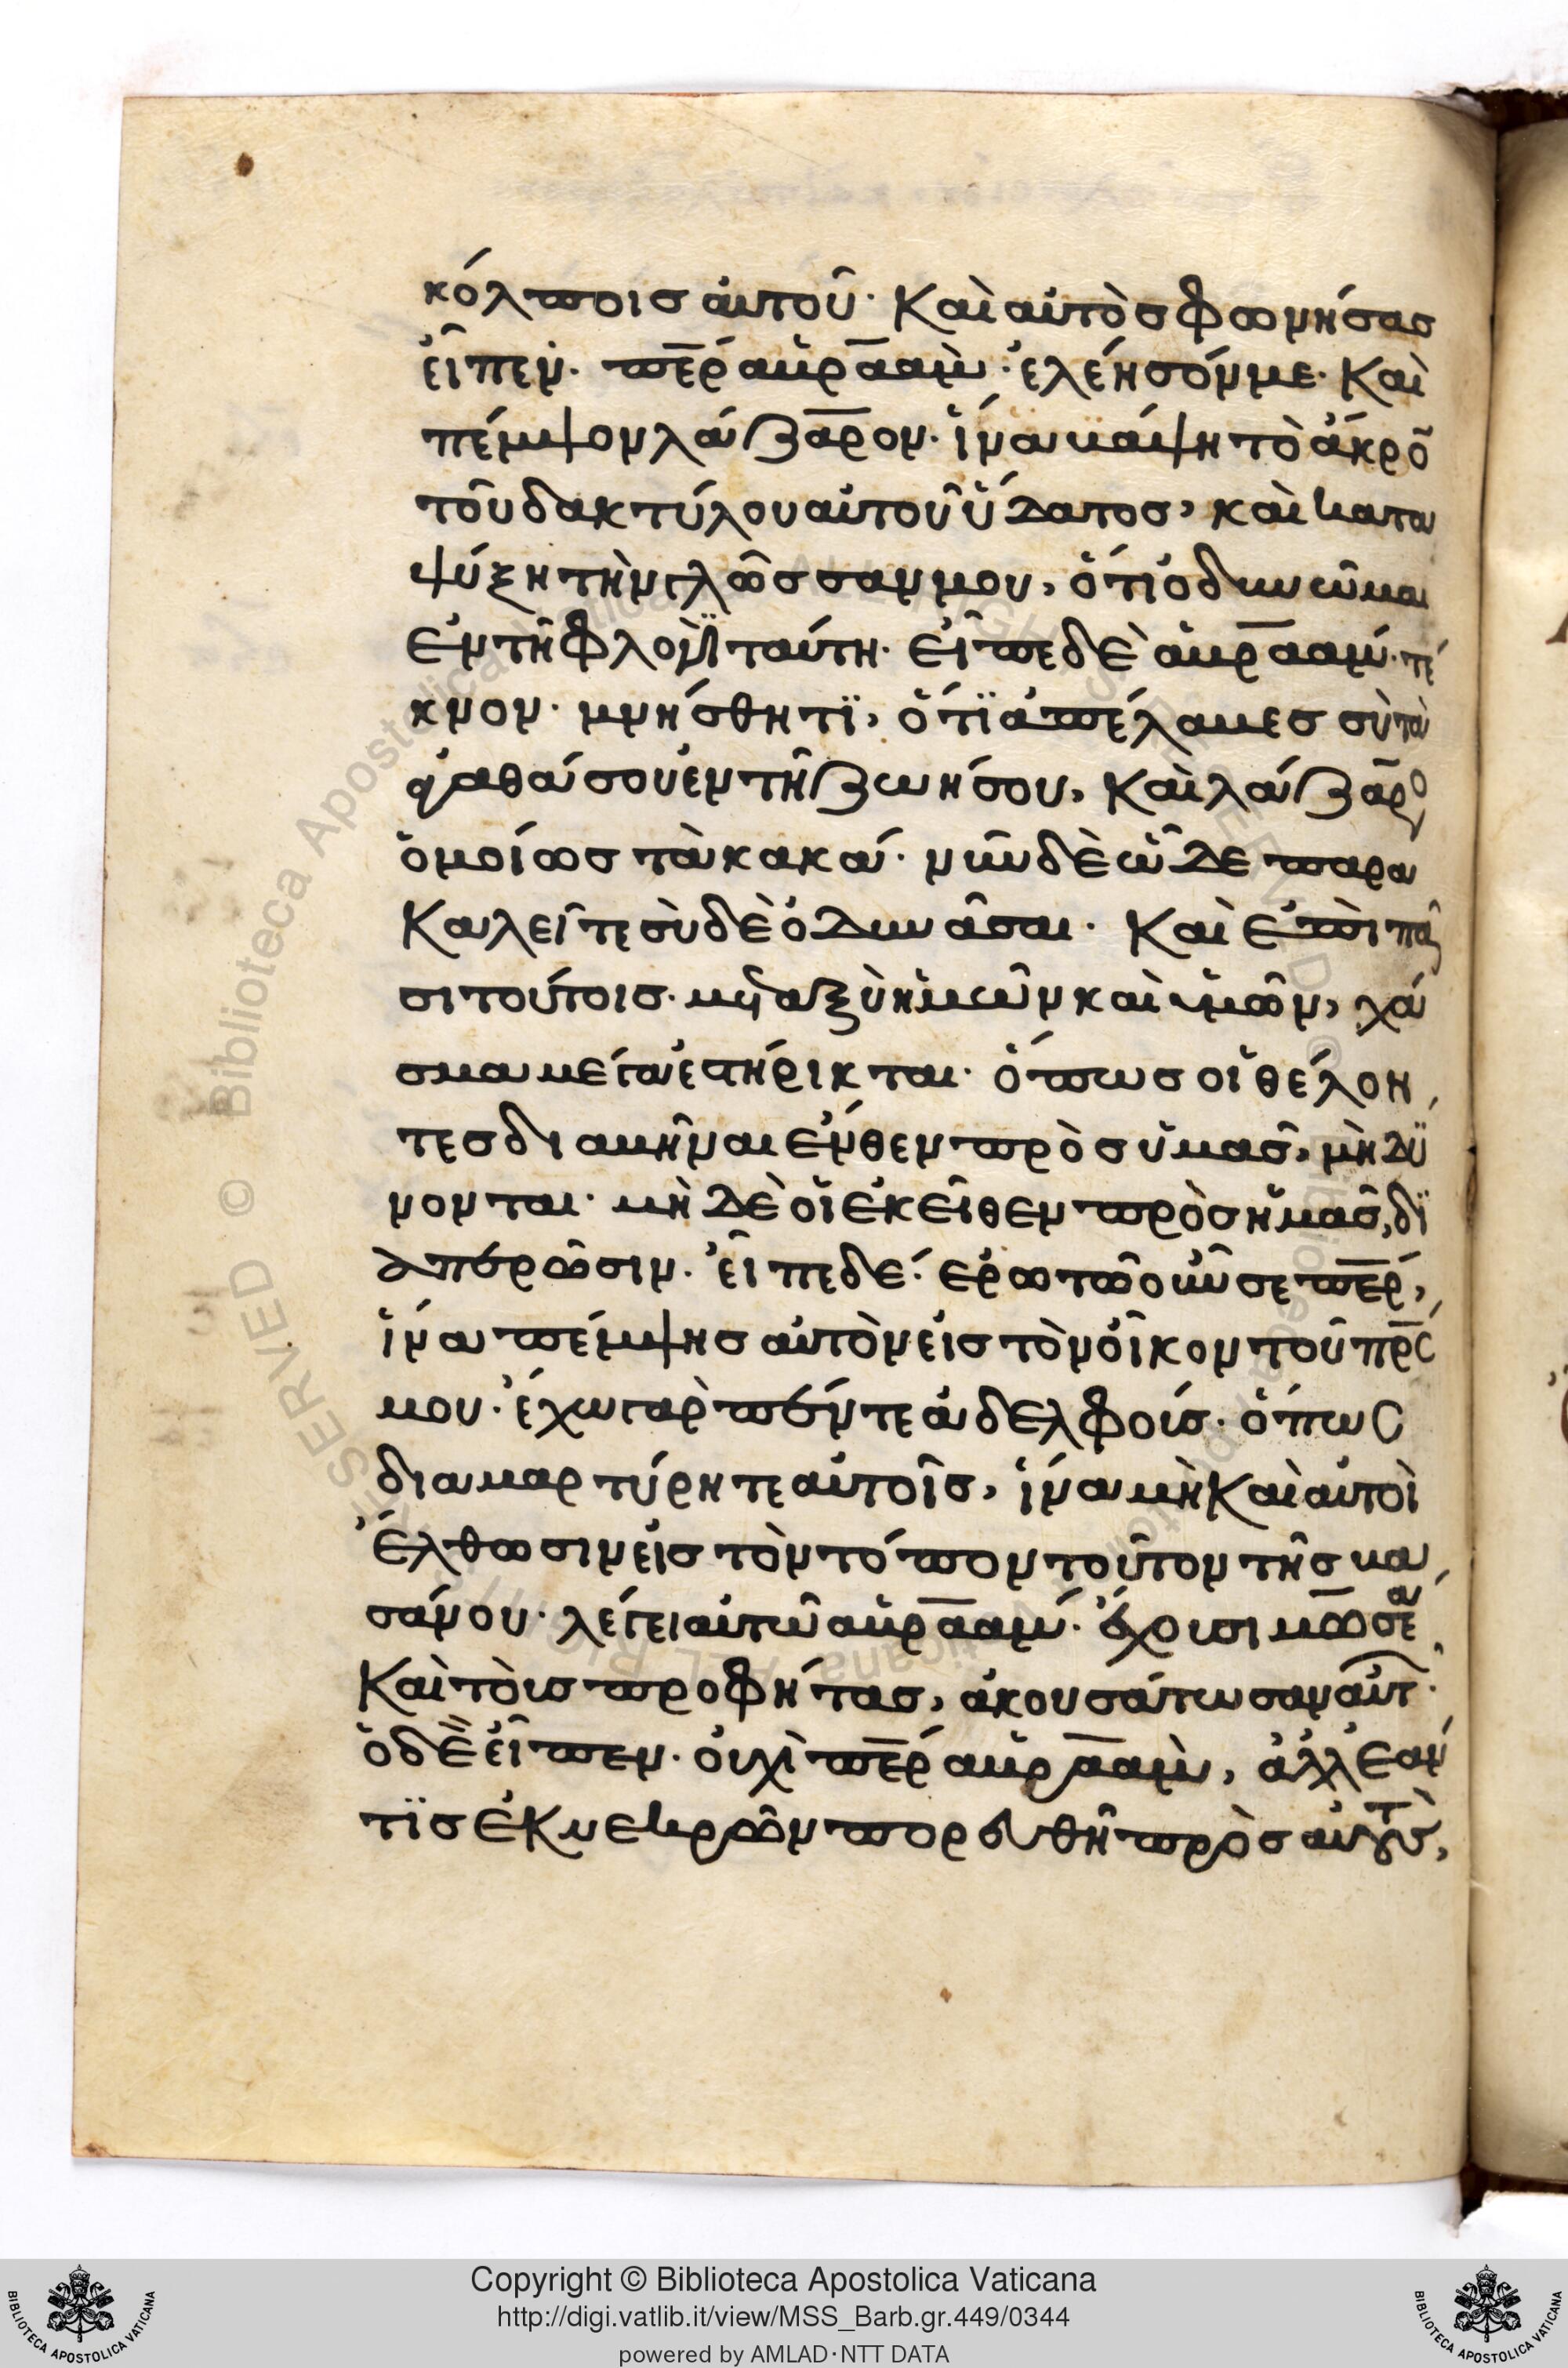 κόλποις αὐτοῦ· Καὶ αὐτὸς φωνήσας
εἶπεν· περ ἀβρααμ· ἐλέησόν με· Καὶ
πέμψον λάζαρον· ἵνα βάψη τὸ ἄκρο̅
τοῦ δακτύλου αὐτοῦ ὕδατος, καὶ κατα
ψύξη τὴν γλῶσσαν μου, ὅτι ὀδυνῶμαι
ἐν τῆ φλογὶ ταύτη· εἶπε δὲ ἀβρααμ· τέ
κνον· μνήσθητϊ, ὅτϊ ἀπέλαβες σὺ τὰ
ἀγαθά σου ἐν τῆ ζωῆ σου, Καὶ λάζαρο
ὁμοίως τὰ κακά· νῦν δὲ ὧδε παρα
Καλεῖτε σὺ δὲ ὀδυνᾶσαι· Καὶ ἐπὶ πᾶ
σι τούτοις· μεταξὺ ἡμῶν καὶ ὑμῶν, χά
σμα μέγα ἐστήρικται· ὅπως οἱ θέλον
τες διαβῆναι ἔνθεν πρὸς ὑμᾶς, μὴ δύ
νονται· μὴ δὲ οἱ ἐκεῖθεν πρὸς ἡμᾶς, δϊ
απερῶσιν· εἶπε δέ· ἐρωτῶ οὖν σε περ,
ἵνα πέμψης αὐτὸν εἰς τὸν οἶκον τοῦ πρς
μου· ἔχω γὰρ πέντε ἀδελφούς· ὅπως
διαμαρτύρητε αὐτοῖς, ἵνα μὴ Καὶ αὐτοὶ
ἔλθωσιν εἰς τὸν τόπον τοῦτον τῆς βα
σάνου· λέγει αὐτῶ ἀβρααμ· ἔχουσι μωσέα
Καὶ τοὺς προφήτας, ἀκουσάτωσαν αὐτ·
ὁ δὲ εἶπεν· οὐχὶ περ ἀβρααμ, ἀλλ ἐάν
τϊς ἐκ νεκρῶν πορευθῆ πρὸς αὐτοὺς,
Copyright © Biblioteca Apostolica Vaticana
http://digi.vatlib.it/view/MSS_Barb.gr.449/0344
powered by AMLAD·NTT DATA
BIBLIOTECA APOSTOLICA VATICANA
BIBLIOTECA APOSTOLICA VATICANA